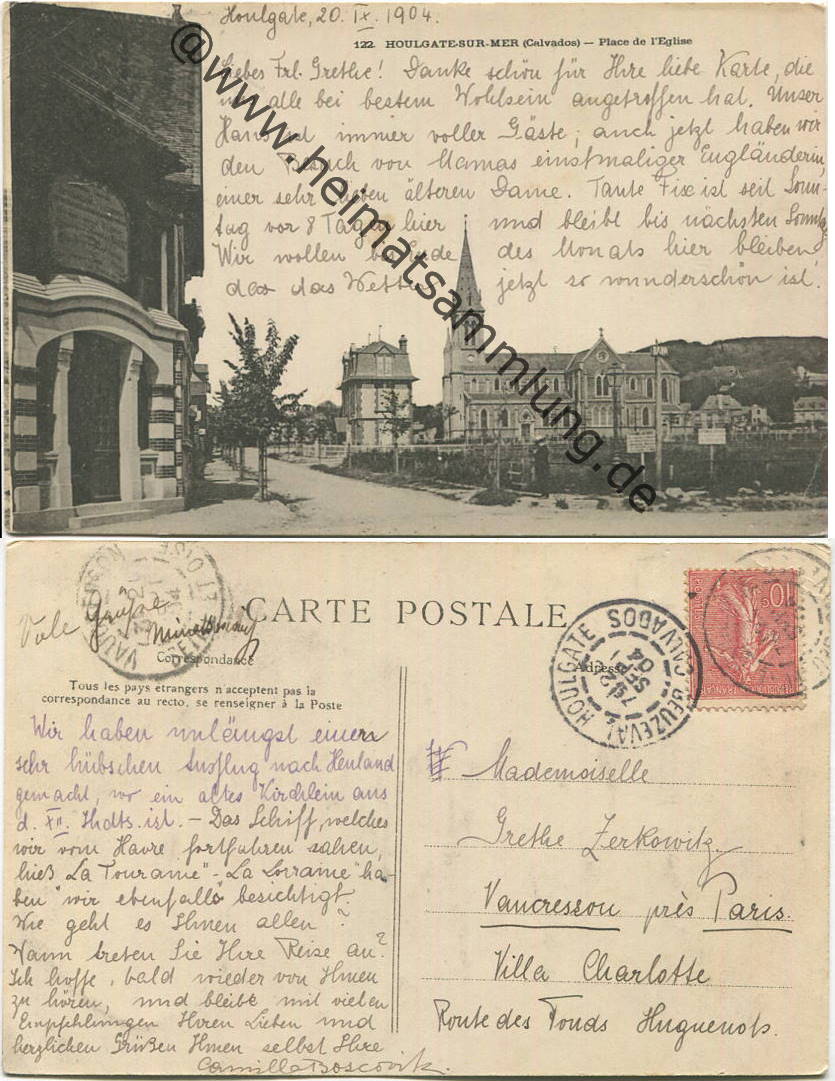 Houlgate, 20. IX. 1904.
122 HOULGATE-SUR-MER (Calvados) — Place de l'Eglise
Liebes Frl. Grethe! Danke schön für Ihre liebe Karte, die
alle bei bestem Wohlsein angetroffen hat. Unser
Haus ist immer voller Gäste; auch jetzt haben wir
den Besuch von Mamas einstmaliger Engländerin,
einer sehr lieben älteren Dame. Tante Fix ist seit Sonn-
tag vor 8 Tagen hier und bleibt bis nächsten Sonntag
Wir wollen bis Ende des Monats hier bleiben,
das Wetter jetzt so wunderschön ist.
@www.heimatsammlung.de
CARTE POSTALE
Viele Grüsse
Correspondance
Adresse
Tous les pays étrangers n'acceptent pas la
correspondance au recto, se renseigner à la Poste
HOULGATE BEUZEVAL
CALVADOS
Wir haben unlängst einen
sehr hübschen Ausflug nach Henland
gemacht, wo ein altes Kirchlein aus
d. XII. Jhdts. ist. — Das Schiff, welches
wir vom Havre fortfahren sahen,
hieß "La Touraine" - "La Lorraine" ha-
ben wir ebenfalls besichtigt.
Wie geht es Ihnen allen?
Wann treten Sie Ihre Reise an?
Ich hoffe, bald wieder von Ihnen
zu hören, und bleibe mit vielen
Empfehlungen Ihren Lieben und
herzlichen Grüßen Ihnen selbst Ihre
Camilla Boscovitz.
Mademoiselle
Grethe Zerkowitz
Vaucresson près Paris.
Villa Charlotte
Route des Fonds Huguenots.